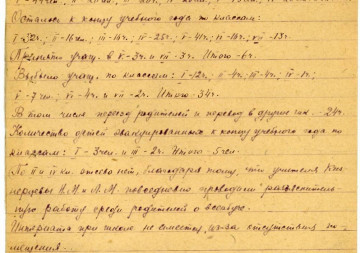 Осталось к концу учебного года по классам:
I-32ч., II-16чел., III-16ч, IV-25ч, V-41ч, VI-14ч, VII-13ч.
учащ. в V-3ч. и VII-3ч. Итого-6ч.
Выбыло учащ. по классам: I-12ч, II-4ч, III-4ч, IV-1ч;
V-7чел; VI-4ч. и VII-2ч. Итого-34ч.
В том числе переезд родителей и перевод в другие шк. - 24ч.
Количество детей эвакуированных к концу учебного года по
классам: I-3чел. и III-2ч. Итого-5чел.
По II и IV отсева нет, благодаря тому, что учителя
Н.М. и Л.М. повседневно проводили разъяснитель-
ную работу среди родителей о всеобуче.
Интерната при школе не имеется из-за отсутствия по-
мещения.